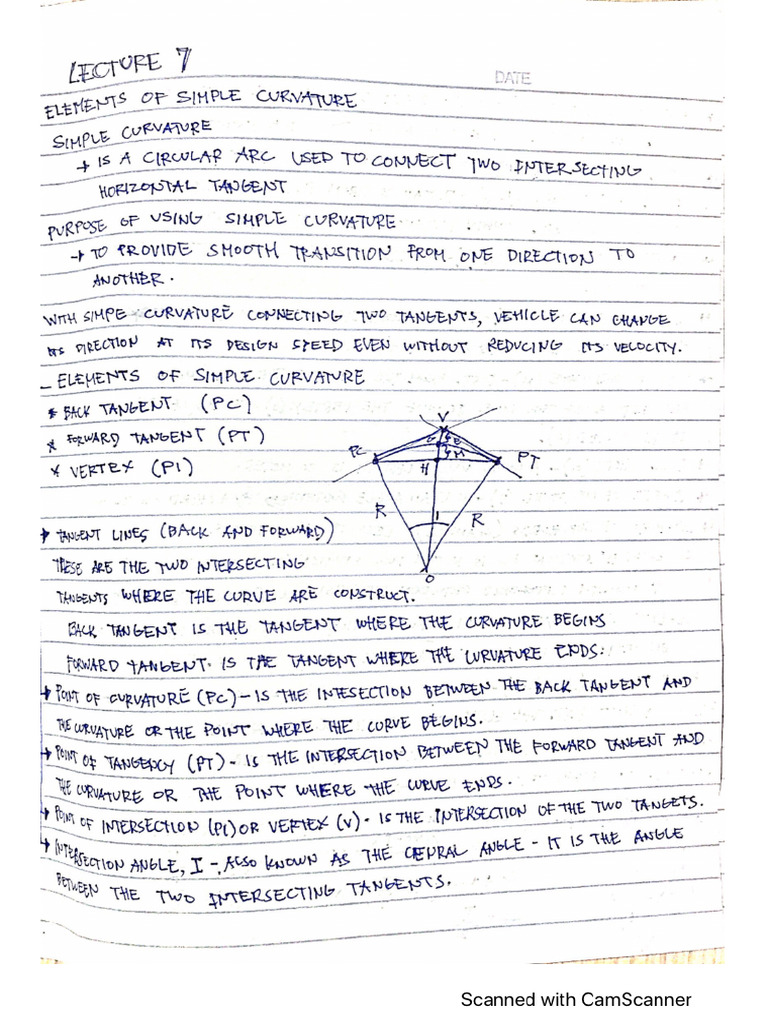 LECTURE 7
DATE
ELEMENTS OF SIMPLE CURVATURE
SIMPLE CURVATURE
→ IS A CIRCULAR ARC USED TO CONNECT TWO INTERSECTING
HORIZONTAL TANGENT
PURPOSE OF USING SIMPLE CURVATURE
→ TO PROVIDE SMOOTH TRANSITION FROM ONE DIRECTION TO
ANOTHER.
WITH SIMPE CURVATURE CONNECTING TWO TANGENTS, VEHICLE CAN CHANGE
ITS DIRECTION AT ITS DESIGN SPEED EVEN WITHOUT REDUCING ITS VELOCITY.
- ELEMENTS OF SIMPLE CURVATURE
* BACK TANGENT (PC)
* FORWARD TANGENT (PT)
* VERTEX (PI)
V
PC
E
M
H
PT
R
I
R
O
→ TANGENT LINES (BACK AND FORWARD)
THESE ARE THE TWO INTERSECTING
TANGENTS WHERE THE CURVE ARE CONSTRUCT.
BACK TANGENT IS THE TANGENT WHERE THE CURVATURE BEGINS
FORWARD TANGENT. IS THE TANGENT WHERE THE CURVATURE ENDS.
→ POINT OF CURVATURE (PC) - IS THE INTESECTION BETWEEN THE BACK TANGENT AND
THE CURVATURE OR THE POINT WHERE THE CURVE BEGINS.
→ POINT OF TANGENCY (PT) - IS THE INTERSECTION BETWEEN THE FORWARD TANGENT AND
THE CURVATURE OR THE POINT WHERE THE CURVE ENDS.
→ POINT OF INTERSECTION (PI) OR VERTEX (V) - IS THE INTERSECTION OF THE TWO TANGETS.
→ INTERSECTION ANGLE, I - ALSO KNOWN AS THE CENRAL ANGLE - IT IS THE ANGLE
BETWEEN THE TWO INTERSECTING TANGENTS.
Scanned with CamScanner